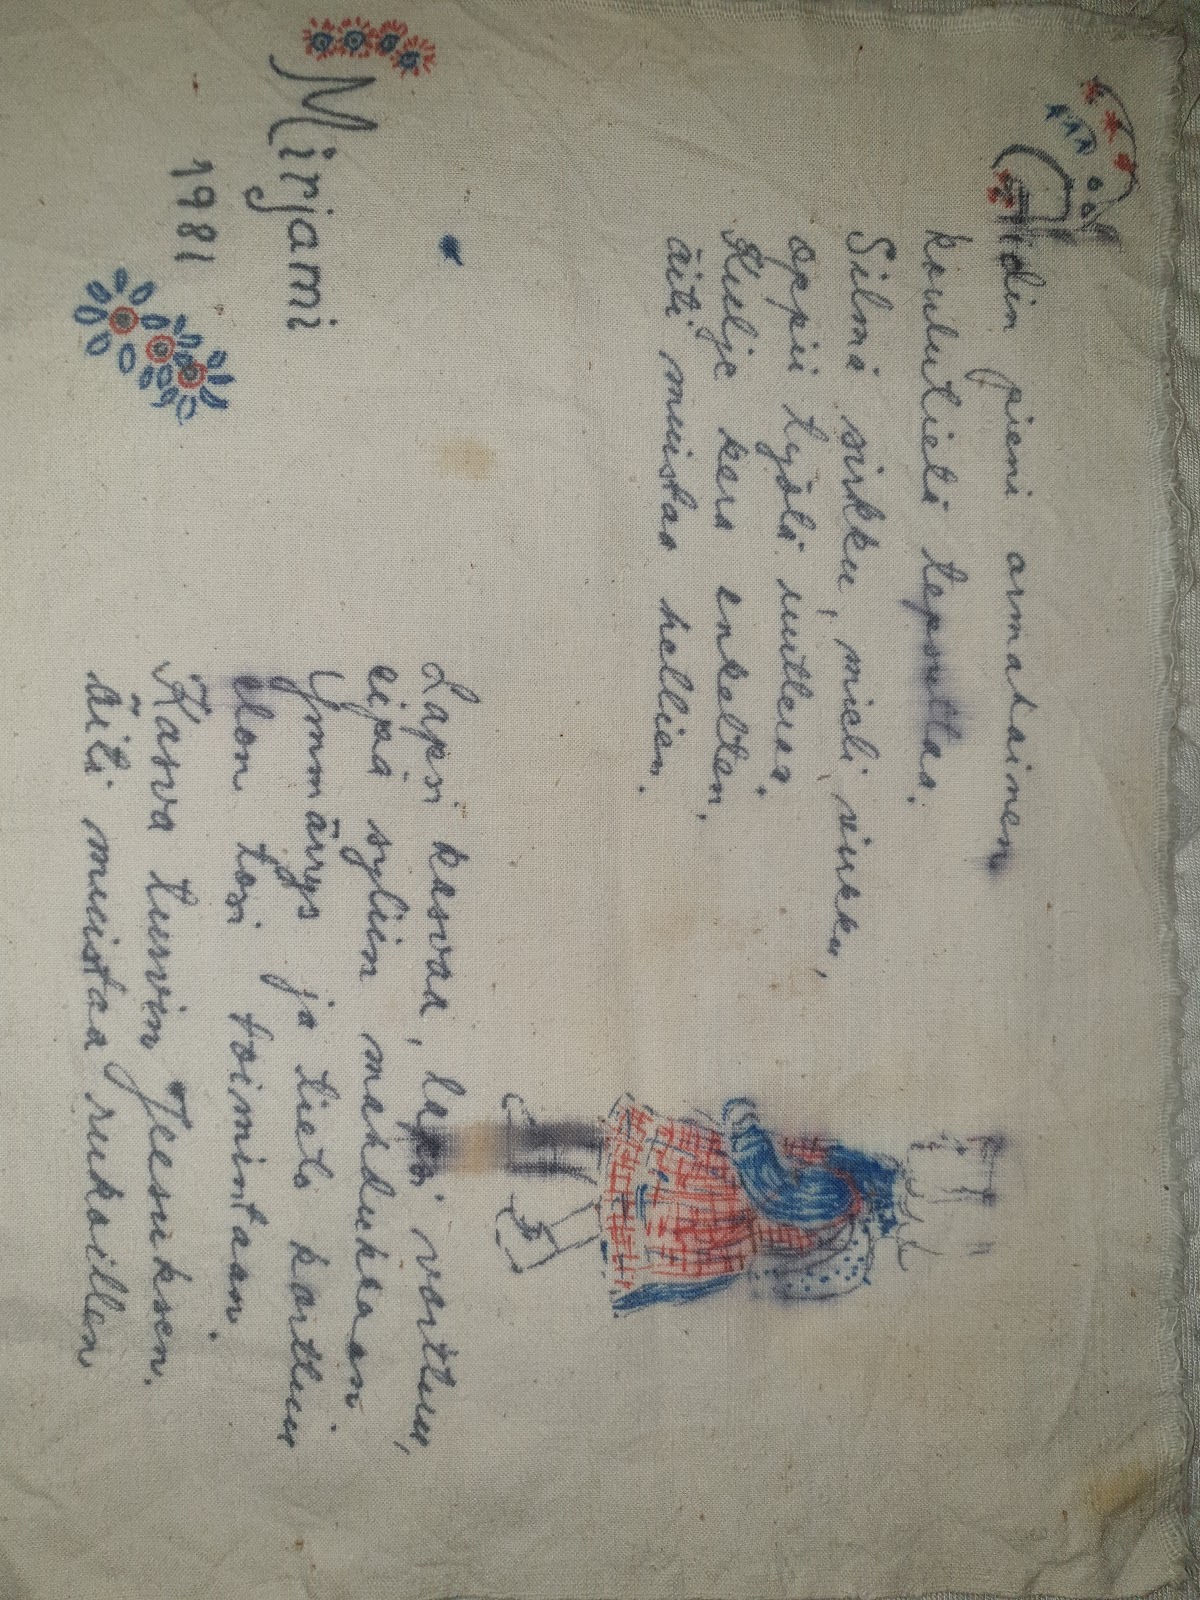 Äidin pieni armahainen
koulutietä tepsuttaa.
Silmä sirkku, mieli virkku,
oppii työtä uutteraa.
Kulje kera enkelten,
äiti muistaa hellien.
Lapsi kasvaa, lapsi varttuu,
eipä syliin mahdukaan.
Ymmärrys ja tieto karttuu
elon tosi toimintaan.
Kasva turvin Jeesuksen.
Äiti muistaa rukoillen
Mirjami
1981